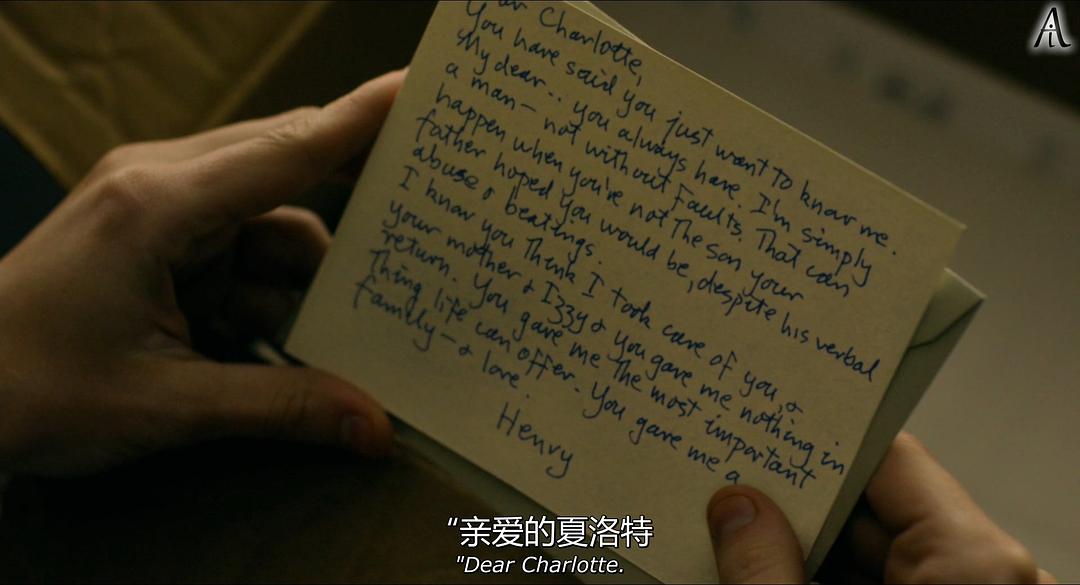 ar Charlotte,
You have said you just want to know me.
My dear.. you always have. I'm simply
a man— not without faults. That can
happen when you're not The son your
father hoped you would be, despite his verbal
abuse & beatings.
I know you Think I took care of you, &
your mother & Izzy & you gave me nothing in
return. You gave me The most important
Thing life can offer. You gave me a
family— & love.
Henry
“亲爱的夏洛特
"Dear Charlotte.
Ai